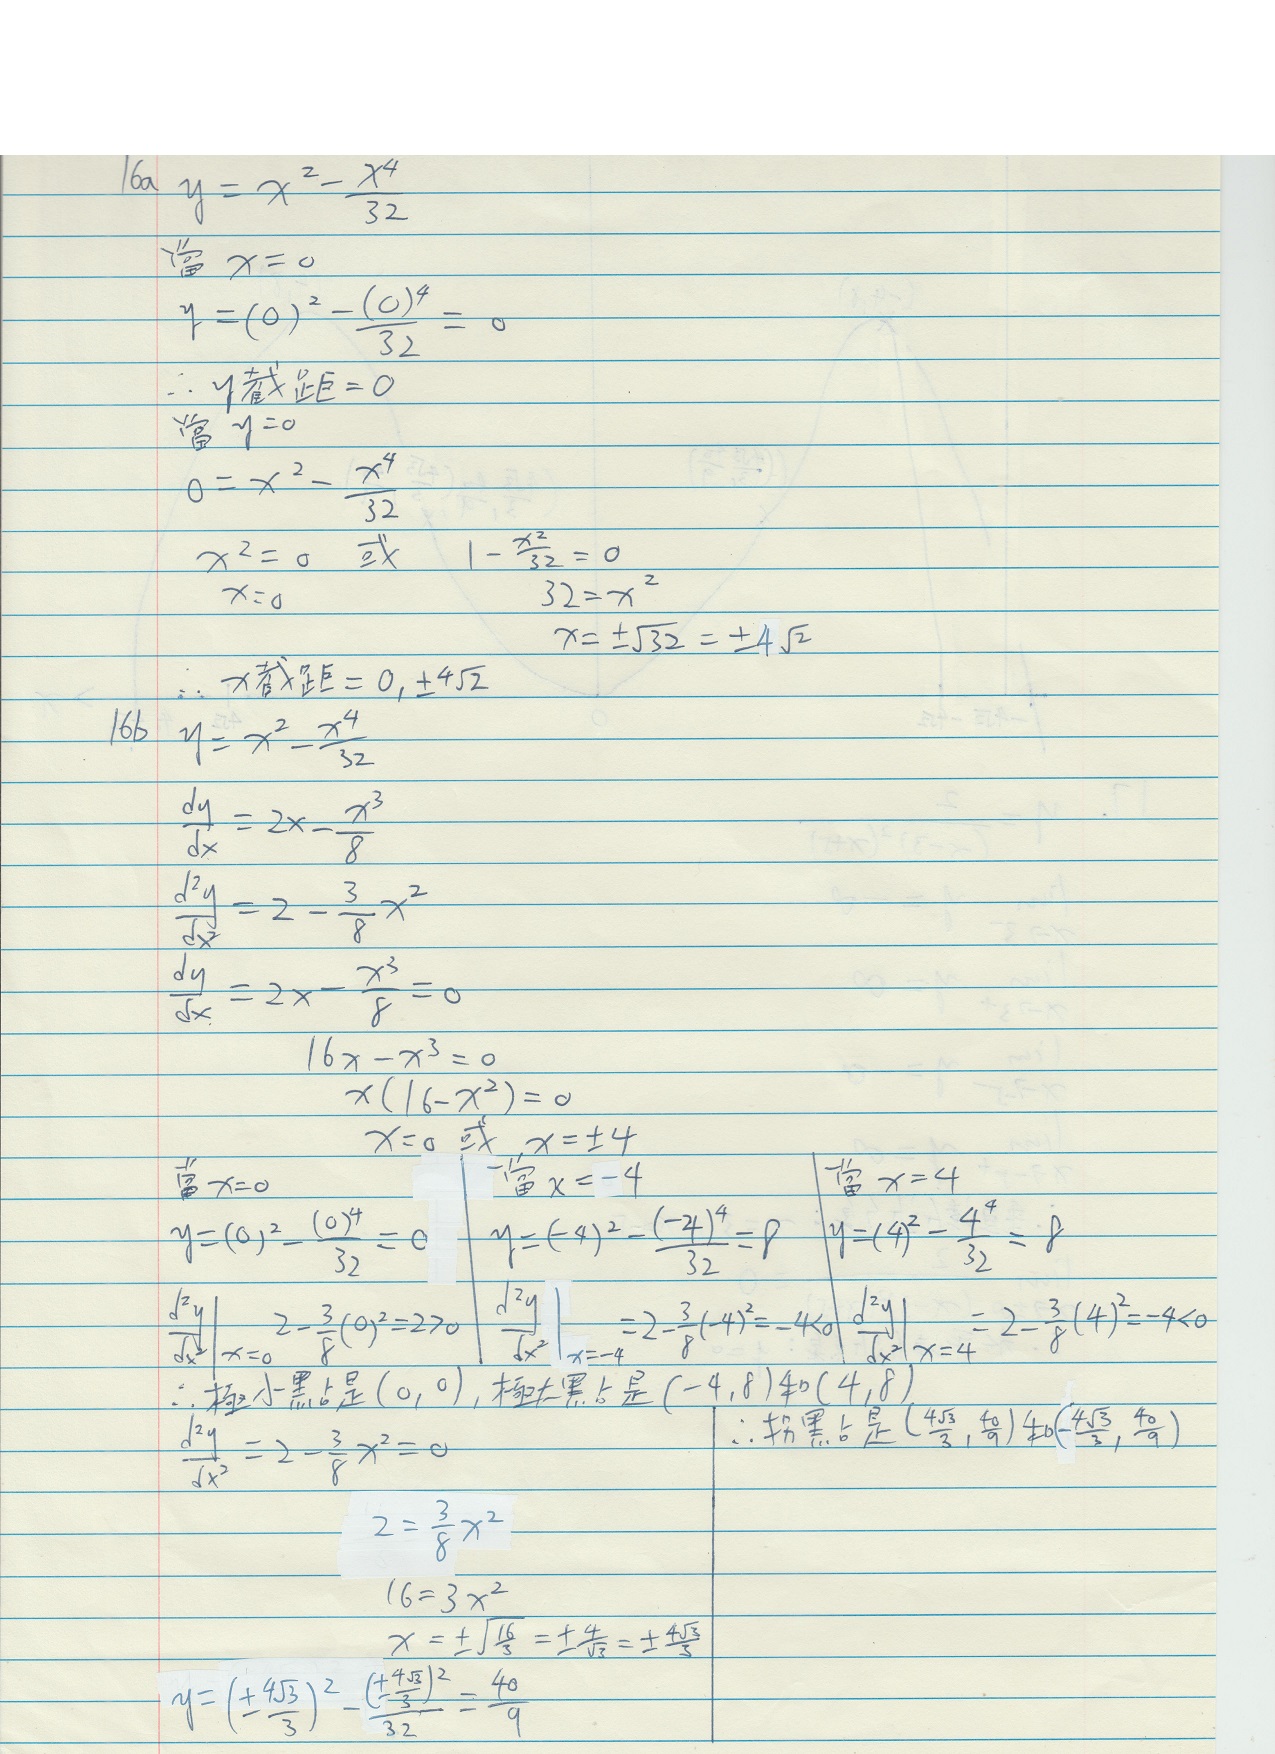 16a y = x² - x⁴/32
當 x = 0
y = (0)² - (0)⁴/32 = 0
∴ y截距 = 0
當 y = 0
0 = x² - x⁴/32
x² = 0 或 1 - x²/32 = 0
x = 0 32 = x²
x = ±√32 = ±4√2
∴ x截距 = 0, ±4√2
16b y = x² - x⁴/32
dy/dx = 2x - x³/8
d²y/dx² = 2 - 3/8 x²
dy/dx = 2x - x³/8 = 0
16x - x³ = 0
x(16 - x²) = 0
x = 0 或 x = ±4
當 x = 0
y = (0)² - (0)⁴/32 = 0
d²y/dx² |x=0 2 - 3/8 (0)² = 2 > 0
當 x = -4
y = (-4)² - (-4)⁴/32 = 8
d²y/dx² |x=-4 = 2 - 3/8 (-4)² = -4 < 0
當 x = 4
y = (4)² - 4⁴/32 = 8
d²y/dx² |x=4 = 2 - 3/8 (4)² = -4 < 0
∴ 極小點是 (0, 0), 極大點是 (-4, 8) 和 (4, 8)
d²y/dx² = 2 - 3/8 x² = 0
2 = 3/8 x²
16 = 3x²
x = ±√(16/3) = ±4/√3 = ±4√3/3
y = (±4√3/3)² - (±4√3/3)²/32 = 40/9
∴ 拐點是 (4√3/3, 40/9) 和 (-4√3/3, 40/9)